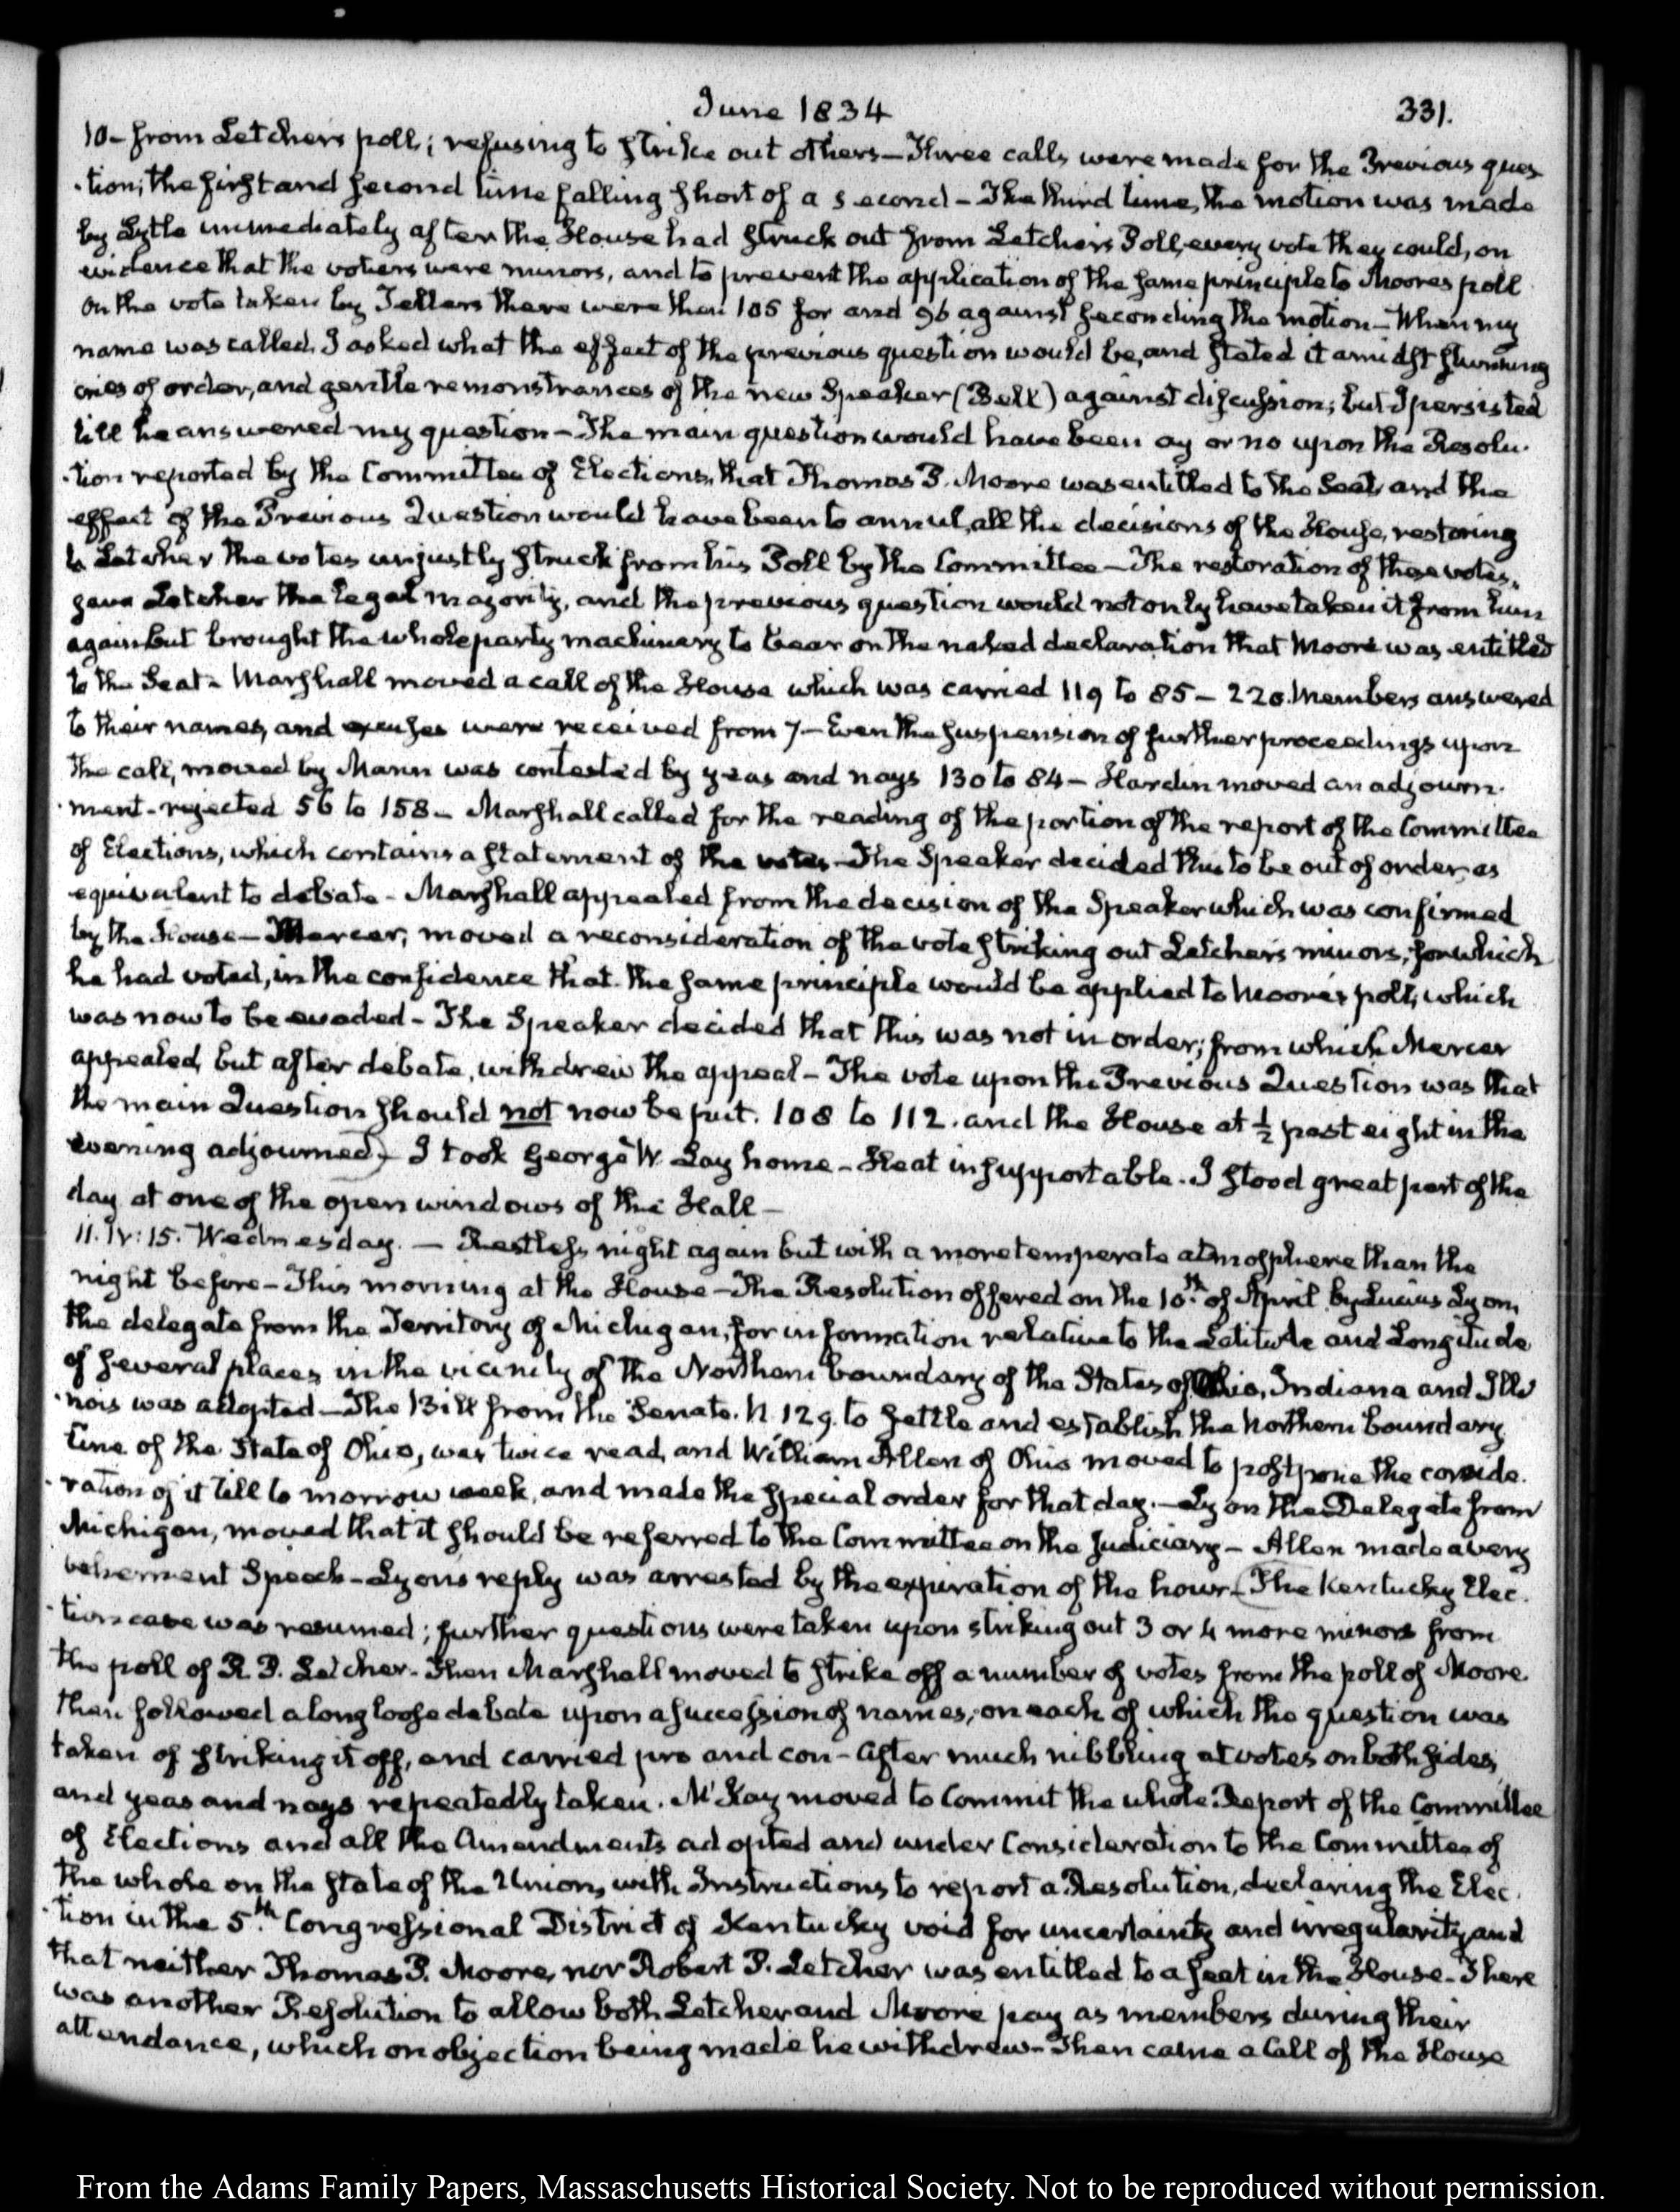 June 1834
331.
10 - from Letchers poll; refusing to strike out others — Three calls were made for the Previous ques
-tion; the first and second time falling short of a second — The third time, the motion was made
by Lytle immediately after the House had struck out from Letchers Poll, every vote they could, on
evidence that the voters were minors, and to prevent the application of the same principle to Moores poll
On the vote taken by Tellers there were then 105 for and 96 against seconding the motion — When my
name was called, I asked what the effect of the previous question would be, and stated it amidst stunning
cries of order, and gentle remonstrances of the new Speaker (Bell) against discussion; but I persisted
till he answered my question — The main question would have been ay or no upon the Resolu-
-tion reported by the Committee of Elections, that Thomas P. Moore was entitled to the Seat, and the
effect of the Previous Question would have been to annul, all the decisions of the House, restoring
to Letcher the votes unjustly struck from his Poll by the Committee — The restoration of these votes,
gave Letcher the legal majority, and the previous question would not only have taken it from him
again but brought the whole party machinery to bear on the naked declaration that Moore was entitled
to the Seat — Marshall moved a call of the House which was carried 119 to 85 — 220. Members answered
to their names, and excuses were received from 7 — Even the suspension of further proceedings upon
the call, moved by Mann was contested by yeas and nays 130 to 84 — Hardin moved an adjourn-
-ment — rejected 56 to 158 — Marshall called for the reading of the portion of the report of the Committee
of Elections, which contains a statement of the votes — The Speaker decided this to be out of order, as
equivalent to debate — Marshall appealed from the decision of the Speaker which was confirmed
by the House — Mercer, moved a reconsideration of the vote striking out Letchers minors, for which
he had voted, in the confidence that the same principle would be applied to Moore's poll, which
was now to be evaded — The Speaker decided that this was not in order; from which Mercer
appealed, but after debate, withdrew the appeal — The vote upon the Previous Question was that
the main Question should not now be put. 108 to 112. and the House at ½ past eight in the
evening adjourned) — I took George W. Lay home — Heat insupportable. I stood great part of the
day at one of the open windows of the Hall —
11. IV:15. Wednesday. — Restless night again but with a more temperate atmosphere than the
night before — This morning at the House — The Resolution offered on the 10th of April by Lucius Lyon,
the delegate from the Territory of Michigan, for information relative to the Latitude and Longitude
of several places in the vicinity of the Northern boundary of the States of Ohio, Indiana and Illi
-nois was adopted — The Bill from the Senate. N. 129. to settle and establish the Northern boundary
line of the State of Ohio, was twice read, and William Allen of Ohio moved to postpone the conside-
-ration of it till to morrow week, and made the special order for that day. — Lyon the Delegate from
Michigan, moved that it should be referred to the Committee on the Judiciary — Allen made a very
vehement Speech — Lyons reply was arrested by the expiration of the hour. (The Kentucky Elec-
-tion case was resumed; further questions were taken upon striking out 3 or 4 more minors from
the poll of R. P. Letcher. Then Marshall moved to strike off a number of votes from the poll of Moore.
then followed a long loose debate upon a succession of names; on each of which the question was
taken of striking it off, and carried pro and con — After much nibbling at votes on both sides,
and yeas and nays repeatedly taken. McKay moved to Commit the whole Report of the Committee
of Elections and all the Amendments adopted and under Consideration to the Committee of
the whole on the state of the Union, with Instructions to report a Resolution, declaring the Elec-
-tion in the 5th Congressional District of Kentucky void for uncertainty and irregularity, and
that neither Thomas P. Moore, nor Robert P. Letcher was entitled to a seat in the House. There
was another Resolution to allow both Letcher and Moore pay as members during their
attendance, which on objection being made he withdrew — Then came a Call of the House
From the Adams Family Papers, Massachusetts Historical Society. Not to be reproduced without permission.